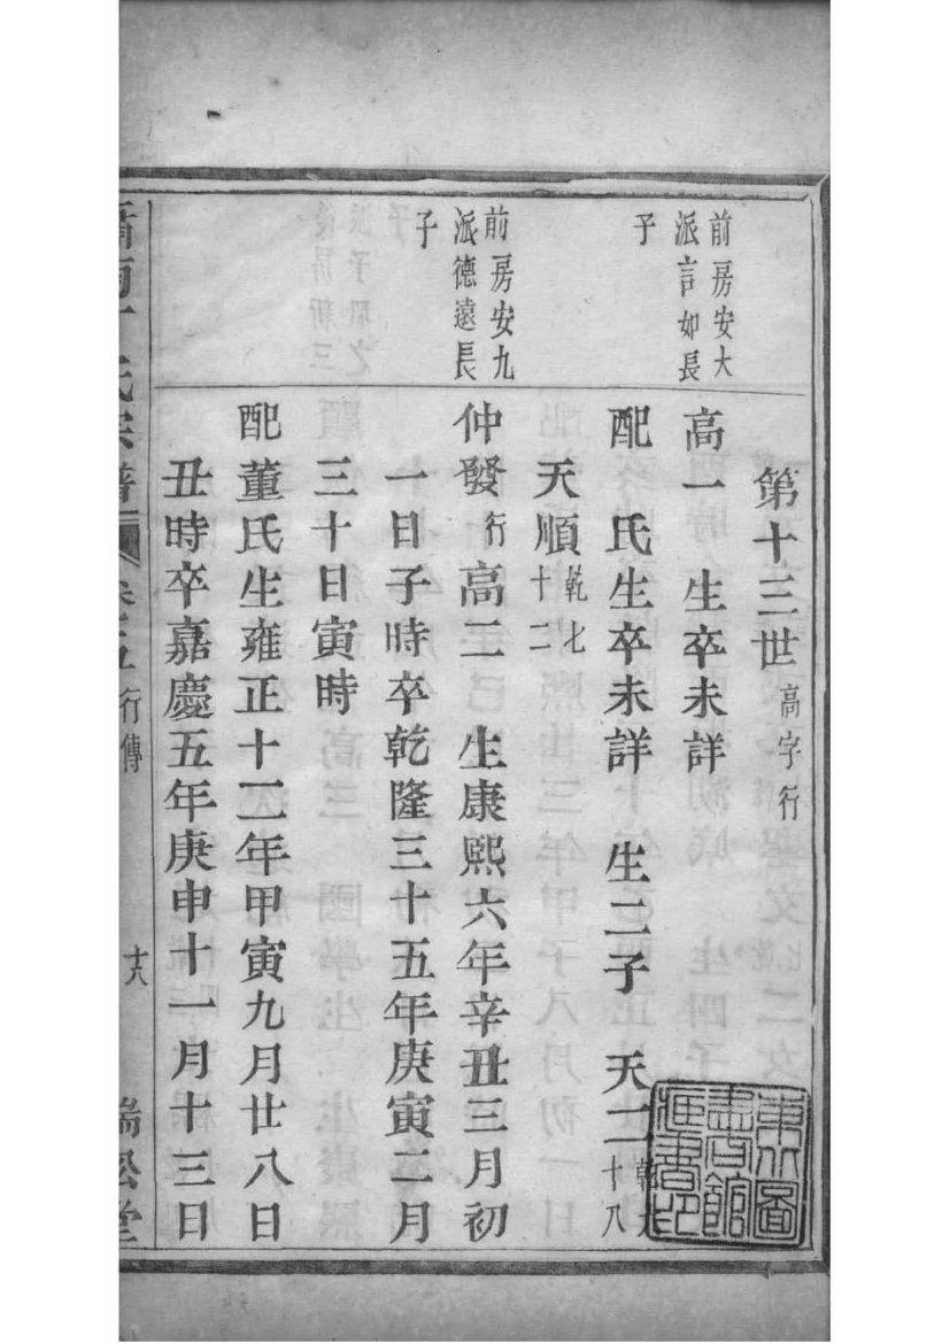 第十三世高字行
前房安大
派言如長
子
高一 生卒未詳
配 氏生卒未詳 生二子 天二
十八
天順乾七
十二
前房安九
派德遠長
子
仲發行高二 生康熙六年辛丑三月初
一日子時卒乾隆三十五年庚寅二月
三十日寅時
配董氏生雍正十二年甲寅九月廿八日
丑時卒嘉慶五年庚申十一月十三日
氏宗譜
行傳
十六